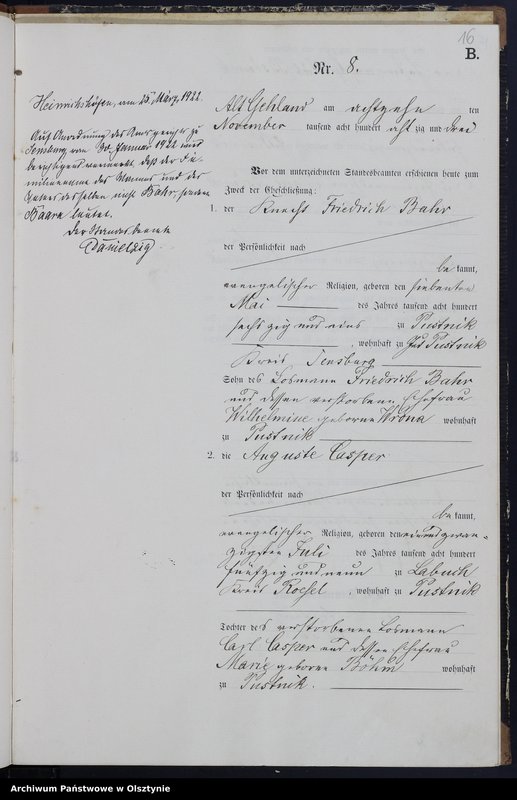 16
B.
Nr. 8.
Heinrichshöfen, am 25. März 1922.
Auf Anordnung des Amtsgerichts zu
Sensburg vom 30. Januar 1922 wird
berichtigend vermerkt, daß der Fa-
milienname des Mannes und des
Vaters desselben nicht Bahr, sondern
Baara lautet.
Der Standesbeamte
Alt Gehland am achtzehn ten
November tausend acht hundert acht zig und drei
Vor dem unterzeichneten Standesbeamten erschienen heute zum
Zweck der Eheschließung:
1. der Knecht Friedrich Bahr
der Persönlichkeit nach
be kannt,
evangelischer Religion, geboren den siebenten
Mai des Jahres tausend acht hundert
sechszig und eins zu Pustnik
, wohnhaft zu Gut Pustnik
Kreis Sensburg
Sohn des Losmann Friedrich Bahr
und dessen verstorbene Ehefrau
Wilhelmine geborne Krona wohnhaft
zu Pustnik
2. die Auguste Casper
der Persönlichkeit nach
be kannt,
evangelischer Religion, geboren den einundzwan-
zigsten Juli des Jahres tausend acht hundert
fünfzig und neun zu Labuch
Kreis Roessel, wohnhaft zu Pustnik
Tochter des verstorbenen Losmann
Carl Casper und dessen Ehefrau
Marie geborne Böhm wohnhaft
zu Pustnik.
Archiwum Państwowe w Olsztynie